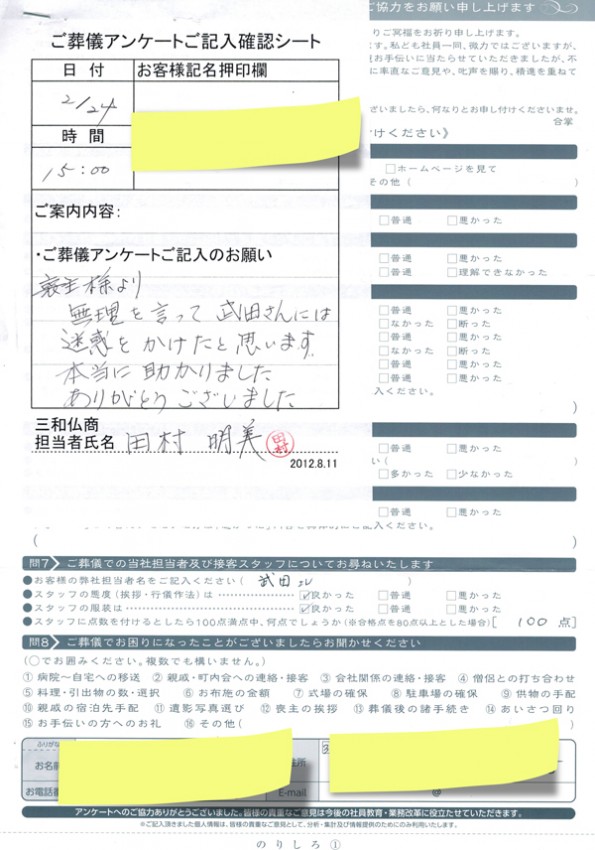 ご協力をお願い申し上げます
りご冥福をお祈り申し上げます。
す。私ども社員一同、微力ではございますが、
お手伝いに当たらせていただきましたが、不
に率直なご意見や、叱声を賜り、積進を重ねて
ざいましたら、何なりとお申し付けくださいませ。
合掌
けください》
□ホームページを見て
その他（ ）
□普通 □悪かった
□普通 □悪かった
□普通 □理解できなかった
□普通 □悪かった
□なかった □断った
□普通 □悪かった
□なかった □断った
□普通 □悪かった
□普通 □悪かった
入ください。
）
□普通 □悪かった
い（ ）
□多かった □少なかった
□普通 □悪かった
記入ください。
（ ）
ご葬儀アンケートご記入確認シート
日付 お客様記名押印欄
2/24
時間
15:00
ご案内内容:
・ご葬儀アンケートご記入のお願い
喪主様より
無理を言って 武田さんには
迷惑を かけたと思います
本当に 助かりました
ありがとう ございました
三和仏商
担当者氏名 田村 明美 田村
2012.8.11
問7 ご葬儀での当社担当者及び接客スタッフについてお尋ねいたします
●お客様の弊社担当者名をご記入ください（ 武田 ）
●スタッフの態度（挨拶・行儀作法）は ☑良かった □普通 □悪かった
●スタッフの服装は ☑良かった □普通 □悪かった
●スタッフに点数を付けるとしたら100点満点中、何点でしょうか（※合格点を80点以上とした場合）［ 100 点］
問8 ご葬儀でお困りになったことがございましたらお聞かせください
（○でお囲みください。複数でも構いません。）
①病院～自宅への移送 ②親戚・町内会への連絡・接客 ③会社関係の連絡・接客 ④僧侶との打ち合わせ
⑤料理・引出物の数・選択 ⑥お布施の金額 ⑦式場の確保 ⑧駐車場の確保 ⑨供物の手配
⑩親戚の宿泊先手配 ⑪遺影写真選び ⑫喪主の挨拶 ⑬葬儀後の諸手続き ⑭あいさつ回り
⑮お手伝いの方へのお礼 ⑯その他（ ）
ふりがな
お名前
お電話番
E-mail
@
アンケートへのご協力ありがとうございました。皆様の貴重なご意見は今後の社員教育・業務改革に役立たせていただきます。
※ご記入頂きました個人情報は、皆様の貴重なご意見として、分析・集計及び情報提供のためにのみ利用いたします。
のりしろ①